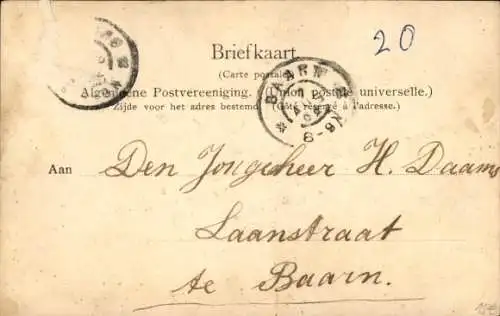 20
Briefkaart
(Carte postale)
Algemeene Postvereeniging. (Union postale universelle.)
Zijde voor het adres bestemd. (Côté réservé à l'adresse.)
BAARN
Aan Den Jongeheer H. Daams
Laanstraat
te Baarn.